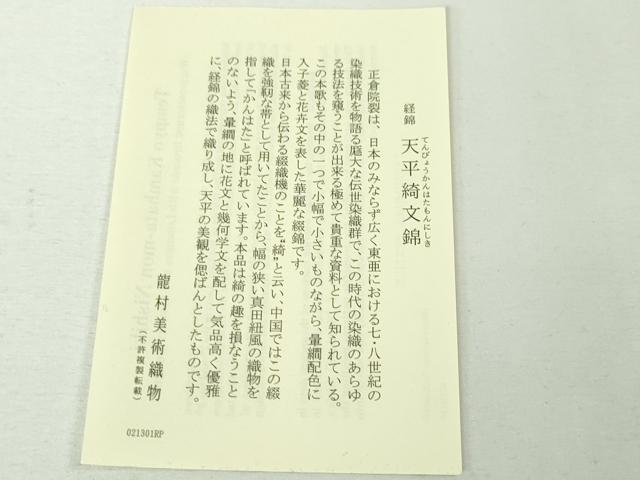 経錦　天平綺文錦
てんぴょうかんはたもんにしき
正倉院裂は、日本のみならず広く東亜における七・八世紀の
染織技術を物語る厖大な伝世染織群で、この時代の染織のあらゆ
る技法を窺うことが出来る極めて貴重な資料として知られている。
この本歌もその中の一つで小幅で小さいものながら、暈繝配色に
入子菱と花卉文を表した華麗な綴錦です。
日本古来から伝わる綴織機のことを“綺”と云い、中国ではこの綴
織を強靭な帯として用いてたことから、幅の狭い真田紐風の織物を
指して「かんはた」と呼ばれています。本品は綺の趣を損なうこと
のないよう、暈繝の地に花文と幾何学文を配して気品高く優雅
に、経錦の織法で織り成し、天平の美観を偲ばんとしたものです。
龍村美術織物
（不許複製転載）
021301RP